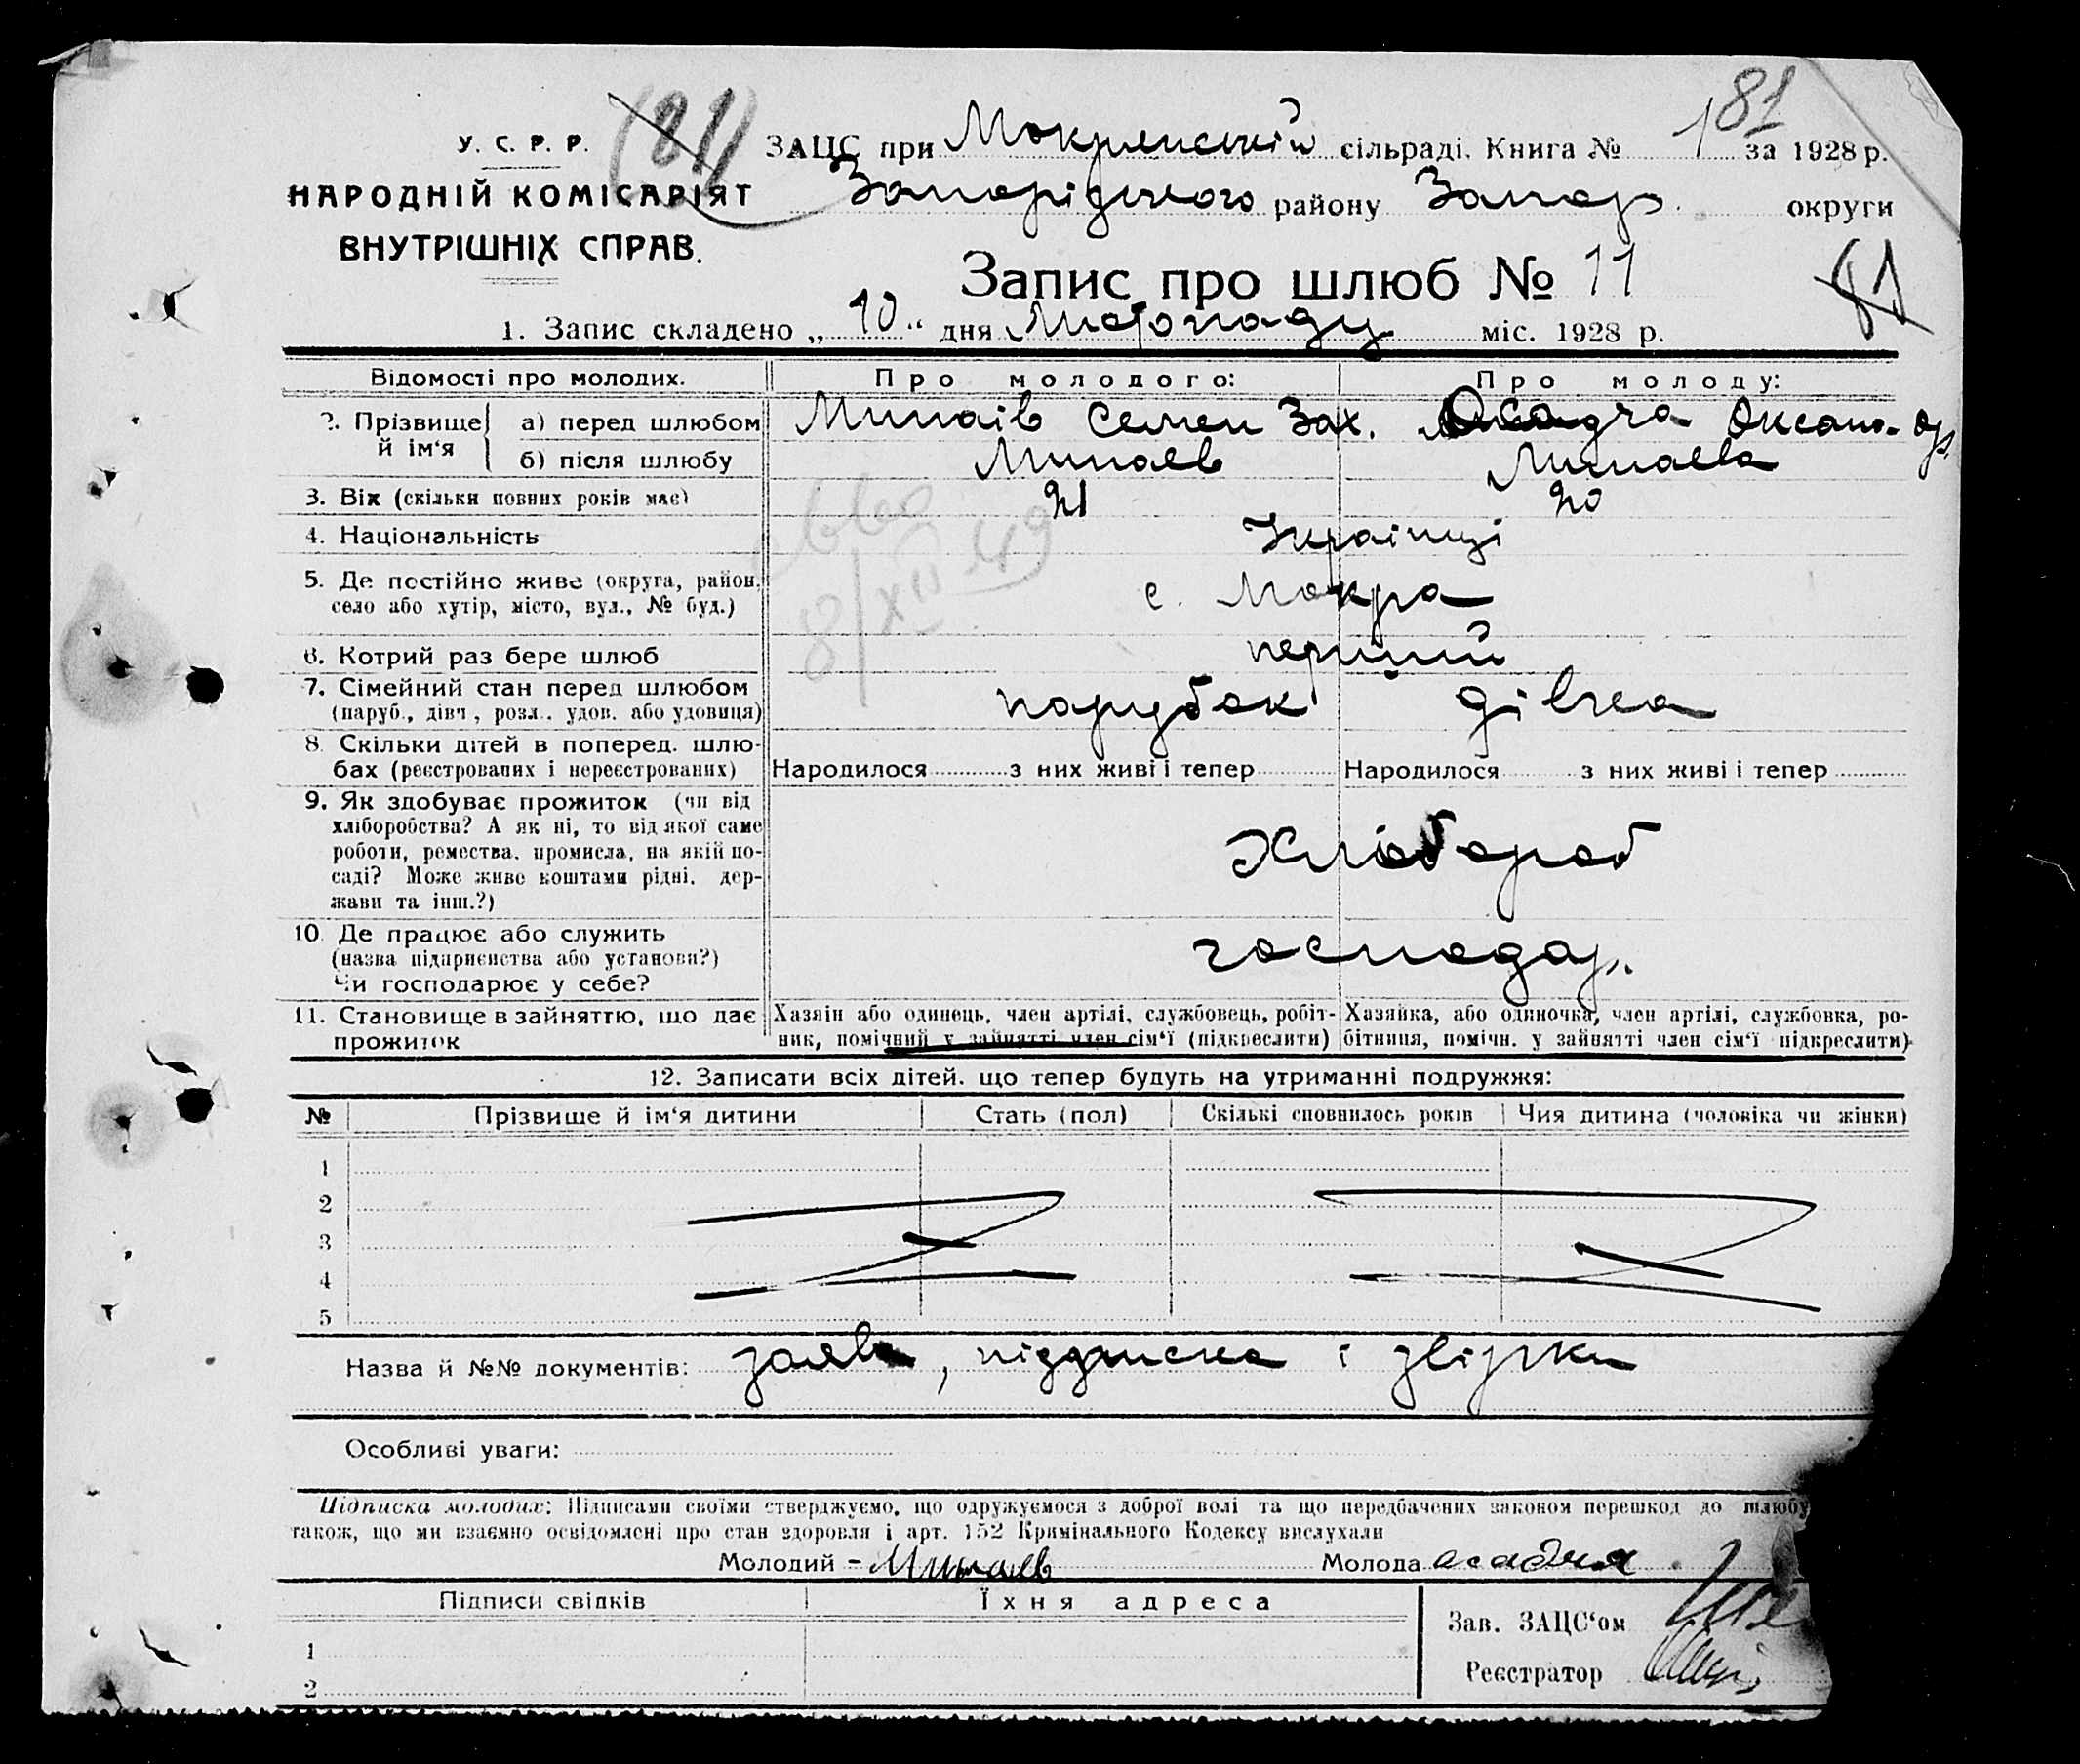 (81) 81
У. С. Р. Р. ЗАЦС при Мокрянській сільраді. Книга № 1 за 1928 р.
НАРОДНІЙ КОМІСАРІЯТ Запорідзького району Запор. округи
ВНУТРІШНІХ СПРАВ.
Запис про шлюб № 11
81
1. Запис складено „10“ дня Листопаду міс. 1928 р.
Відомості про молодих. Про молодого: Про молоду:
2. Прізвище й ім‘я а) перед шлюбом Минаів Семен Зах. Осадча Оксана
б) після шлюбу Минаев Минаева
3. Вік (скільки повних років має) 21 20
4. Національність Українці
5. Де постійно живе (округа, район, с. Мокра
село або хутір, місто, вул., № буд.)
8/XII 49
6. Котрий раз бере шлюб перший
7. Сімейний стан перед шлюбом парубок дівча
(паруб., дівч., розл., удов. або удовиця)
8. Скільки дітей в поперед. шлю-
бах (реєстрованих і нереєстрованих) Народилося з них живі і тепер Народилося з них живі і тепер
9. Як здобуває прожиток (чи від
хліборобства? А як ні, то від якої саме
роботи, ремества, промисла, на якій по- Хлібороб
саді? Може живе коштами рідні, дер-
жави та інш.?)
10. Де працює або служить
(назва підприємства або установи?) господар.
Чи господарює у себе?
11. Становище в зайняттю, що дає Хазяїн або одинець, член артілі, службовець, робіт- Хазяйка, або одиночка, член артілі, службовка, ро-
прожиток ник, помічний у зайнятті член сім‘ї (підкреслити) бітниця, помічн. у зайнятті член сім‘ї підкреслити)
12. Записати всіх дітей, що тепер будуть на утриманні подружжя:
№ Прізвище й ім‘я дитини Стать (пол) Скількі сповнилось років Чия дитина (чоловіка чи жінки)
1
2
3
4
5
Назва й №№ документів: заява, підписка і звірки
Особливі уваги:
Підписка молодих: Підписами своїми стверджуємо, що одружуємося з доброї волі та що передбачених законом перешкод до шлюбу
також, що ми взаємно освідомлені про стан здоровля і арт. 152 Кримінального Кодексу вислухали
Молодий - Минаев Молода асадчая
Підписи свідків Їхня адреса
Зав. ЗАЦС‘ом
1
Реєстратор
2